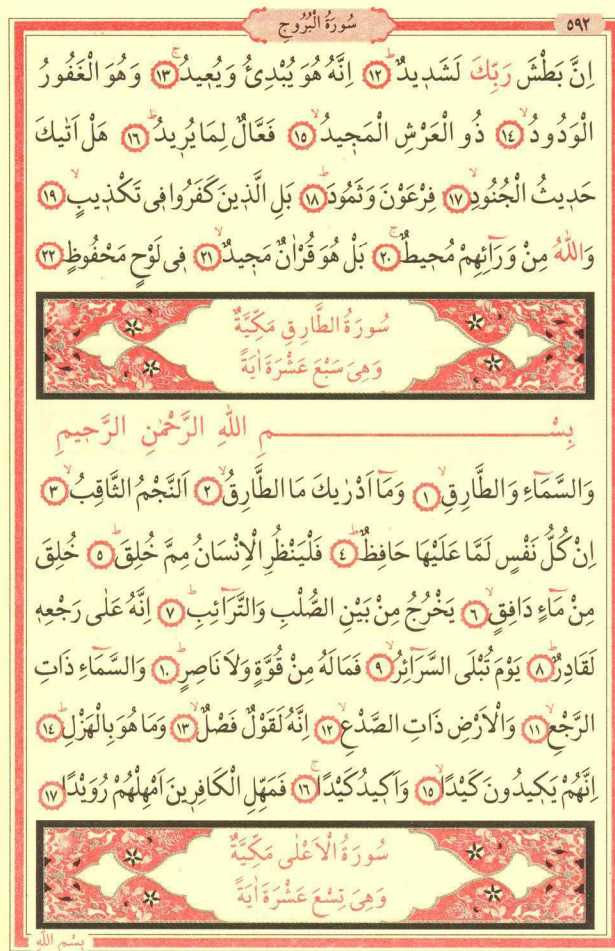 ٥٩٢
سُورَةُ الْبُرُوجِ
اِنَّ بَطْشَ رَبِّكَ لَشَد۪يدٌۜ ﴿١٢﴾ اِنَّهُ هُوَ يُبْدِئُ وَيُع۪يدُۚ ﴿١٣﴾ وَهُوَ الْغَفُورُ
الْوَدُودُۙ ﴿١٤﴾ ذُو الْعَرْشِ الْمَج۪يدُۙ ﴿١٥﴾ فَعَّالٌ لِمَا يُر۪يدُۜ ﴿١٦﴾ هَلْ اَتٰيكَ
حَد۪يثُ الْجُنُودِۙ ﴿١٧﴾ فِرْعَوْنَ وَثَمُودَۜ ﴿١٨﴾ بَلِ الَّذ۪ينَ كَفَرُوا ف۪ي تَكْذ۪يبٍۙ ﴿١٩﴾
وَاللّٰهُ مِنْ وَرَٓائِهِمْ مُح۪يطٌۚ ﴿٢٠﴾ بَلْ هُوَ قُرْاٰنٌ مَج۪يدٌۙ ﴿٢١﴾ ف۪ي لَوْحٍ مَحْفُوظٍ ﴿٢٢﴾
سُورَةُ الطَّارِقِ مَكِّيَّةٌ
وَهِيَ سَبْعَ عَشْرَةَ اٰيَةً
بِسْمِ اللّٰهِ الرَّحْمٰنِ الرَّح۪يمِ
وَالسَّمَٓاءِ وَالطَّارِقِۙ ﴿١﴾ وَمَٓا اَدْرٰيكَ مَا الطَّارِقُۙ ﴿٢﴾ اَلنَّجْمُ الثَّاقِبُۙ ﴿٣﴾
اِنْ كُلُّ نَفْسٍ لَمَّا عَلَيْهَا حَافِظٌۜ ﴿٤﴾ فَلْيَنْظُرِ الْاِنْسَانُ مِمَّ خُلِقَۜ ﴿٥﴾ خُلِقَ
مِنْ مَٓاءٍ دَافِقٍۙ ﴿٦﴾ يَخْرُجُ مِنْ بَيْنِ الصُّلْبِ وَالتَّرَٓائِبِۜ ﴿٧﴾ اِنَّهُ عَلٰى رَجْعِه۪
لَقَادِرٌۜ ﴿٨﴾ يَوْمَ تُبْلَى السَّرَٓائِرُۙ ﴿٩﴾ فَمَا لَهُ مِنْ قُوَّةٍ وَلَا نَاصِرٍۜ ﴿١٠﴾ وَالسَّمَٓاءِ ذَاتِ
الرَّجْعِۙ ﴿١١﴾ وَالْاَرْضِ ذَاتِ الصَّدْعِۙ ﴿١٢﴾ اِنَّهُ لَقَوْلٌ فَصْلٌۙ ﴿١٣﴾ وَمَا هُوَ بِالْهَزْلِۜ ﴿١٤﴾
اِنَّهُمْ يَك۪يدُونَ كَيْدًاۙ ﴿١٥﴾ وَاَك۪يدُ كَيْدًاۚ ﴿١٦﴾ فَمَهِّلِ الْكَافِر۪ينَ اَمْهِلْهُمْ رُوَيْدًا ﴿١٧﴾
سُورَةُ الْاَعْلٰى مَكِّيَّةٌ
وَهِيَ تِسْعَ عَشْرَةَ اٰيَةً
بِسْمِ اللّٰهِ